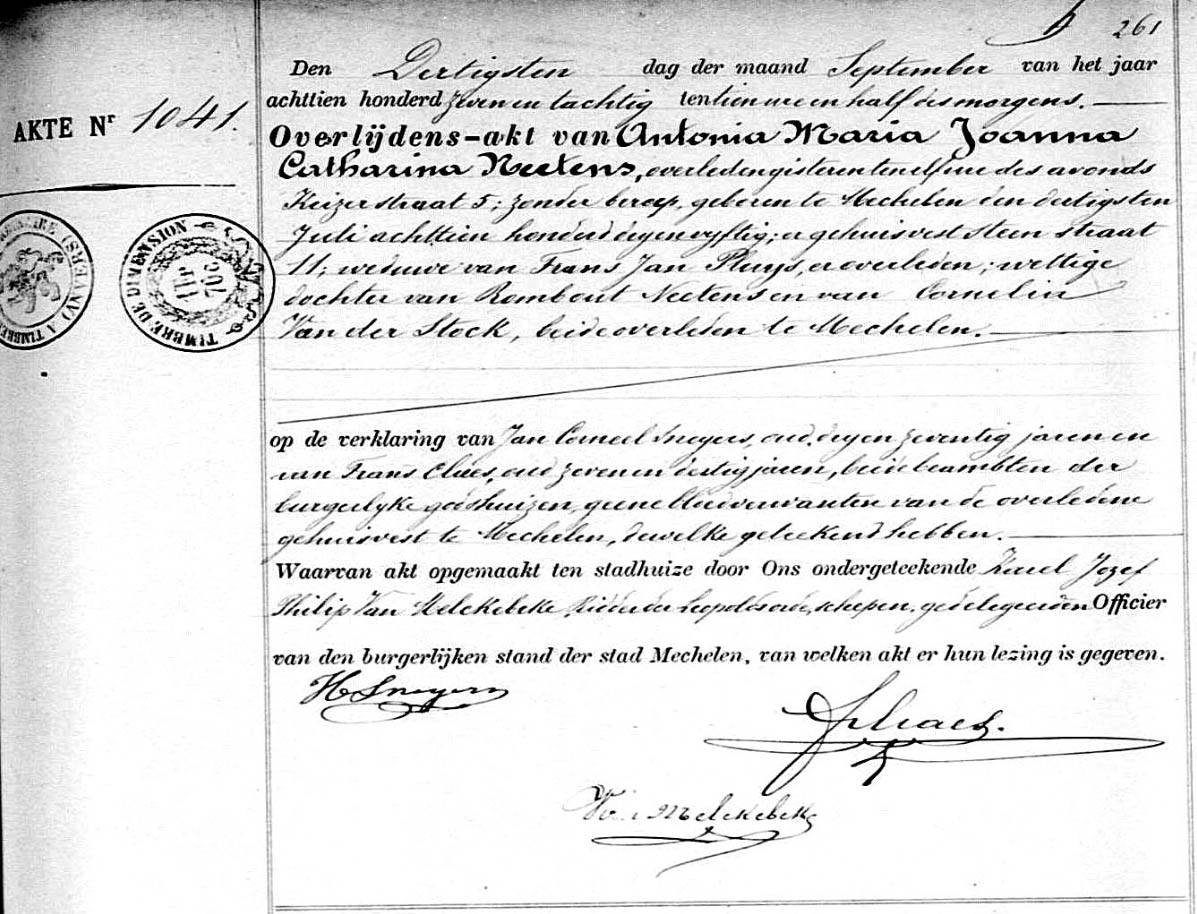 261
Den Dertigsten dag der maand September van het jaar
AKTE Nr 1041.
achttien honderd zeven en tachtig ten tien ure en half des morgens.
Overlijdens-akt van Antonia Maria Joanna
Catharina Neetens, overleden gisteren ten elf ure des avonds
Keizerstraat 5; zonder beroep, geboren te Mechelen den dertigsten
Juli achttien honderd dryenvyftig; er gehuisvest steen straat
11; weduwe van Frans Jan Pluys, er overleden; wettige
dochter van Rombout Neetens en van Cornelia
Van der Stock, beide overleden te Mechelen.
TIMBRE DE DIMENSION
op de verklaring van Jan Corneel Snegers, oud dryen zeventig jaren en
van Frans Claes, oud zeven en dertig jaren, beide beambten der
burgerlyke godshuizen, geene bloedverwanten van de overledene
gehuisvest te Mechelen, dewelke geteekend hebben.
Waarvan akt opgemaakt ten stadhuize door Ons ondergeteekende Karel Jozef
Philip Van Melckebeke, Ridder der Leopoldsorde, schepen, gedelegeerden Officier
van den burgerlijken stand der stad Mechelen, van welken akt er hun lezing is gegeven.
H Snegers
F Claes.
V. Melckebeke